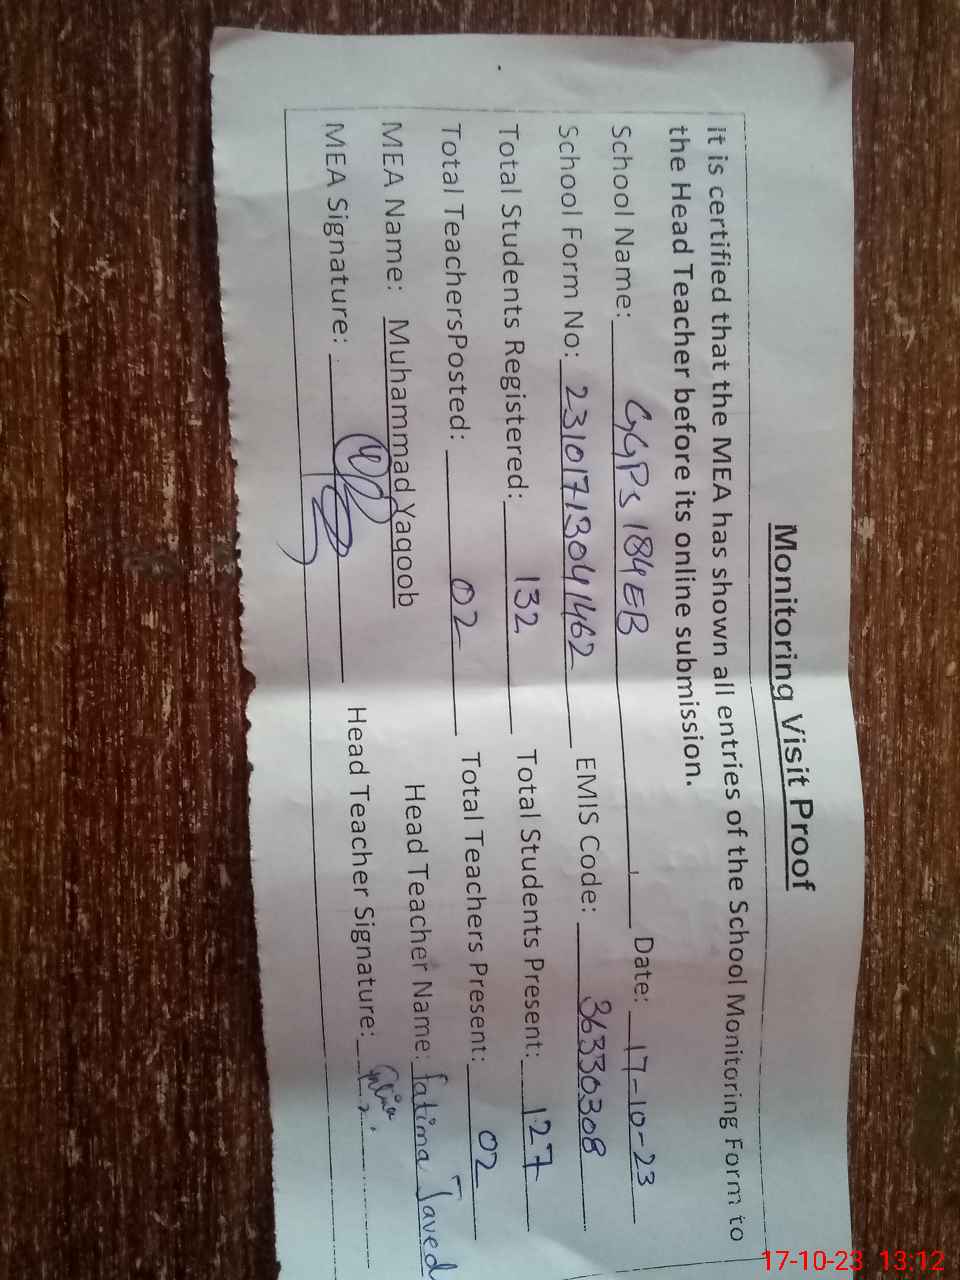 Monitoring Visit Proof
it is certified that the MEA has shown all entries of the School Monitoring Form to
the Head Teacher before its online submission.
School Name: GGPS 184EB Date: 17-10-23
School Form No: 23101713041462 EMIS Code: 36330308
Total Students Registered: 132 Total Students Present: 127
Total TeachersPosted: 02 Total Teachers Present: 02
MEA Name: Muhammad Yaqoob Head Teacher Name: fatima Javed
MEA Signature: Head Teacher Signature:
17-10-23 13:12